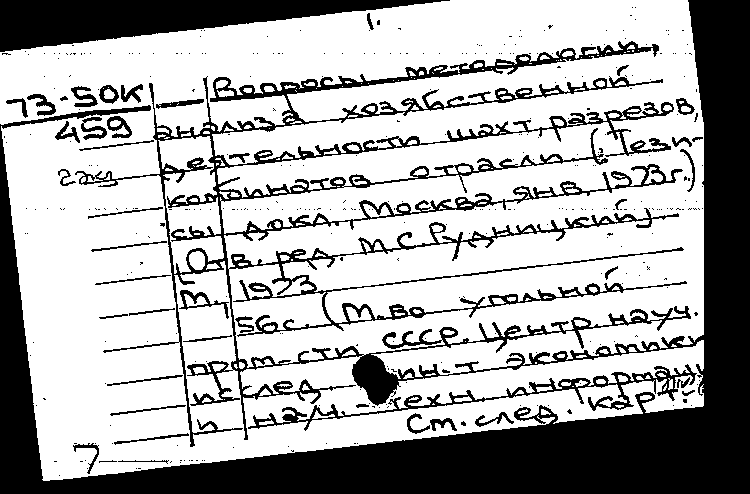 1.
73-50К Вопросы методологии,
459 анализа хозяйственной
деятельности шахт, разрезов,
2 экз комбинатов отрасли (: Тези-
сы докл., Москва, янв. 1973г.)
[Отв. ред. М.С. Рудницкий]
М., 1973.
56с. (М-во угольной
пром-сти СССР. Центр. науч.
исслед. ин-т экономики
и науч.-техн. информаци
См. след. карт.
7